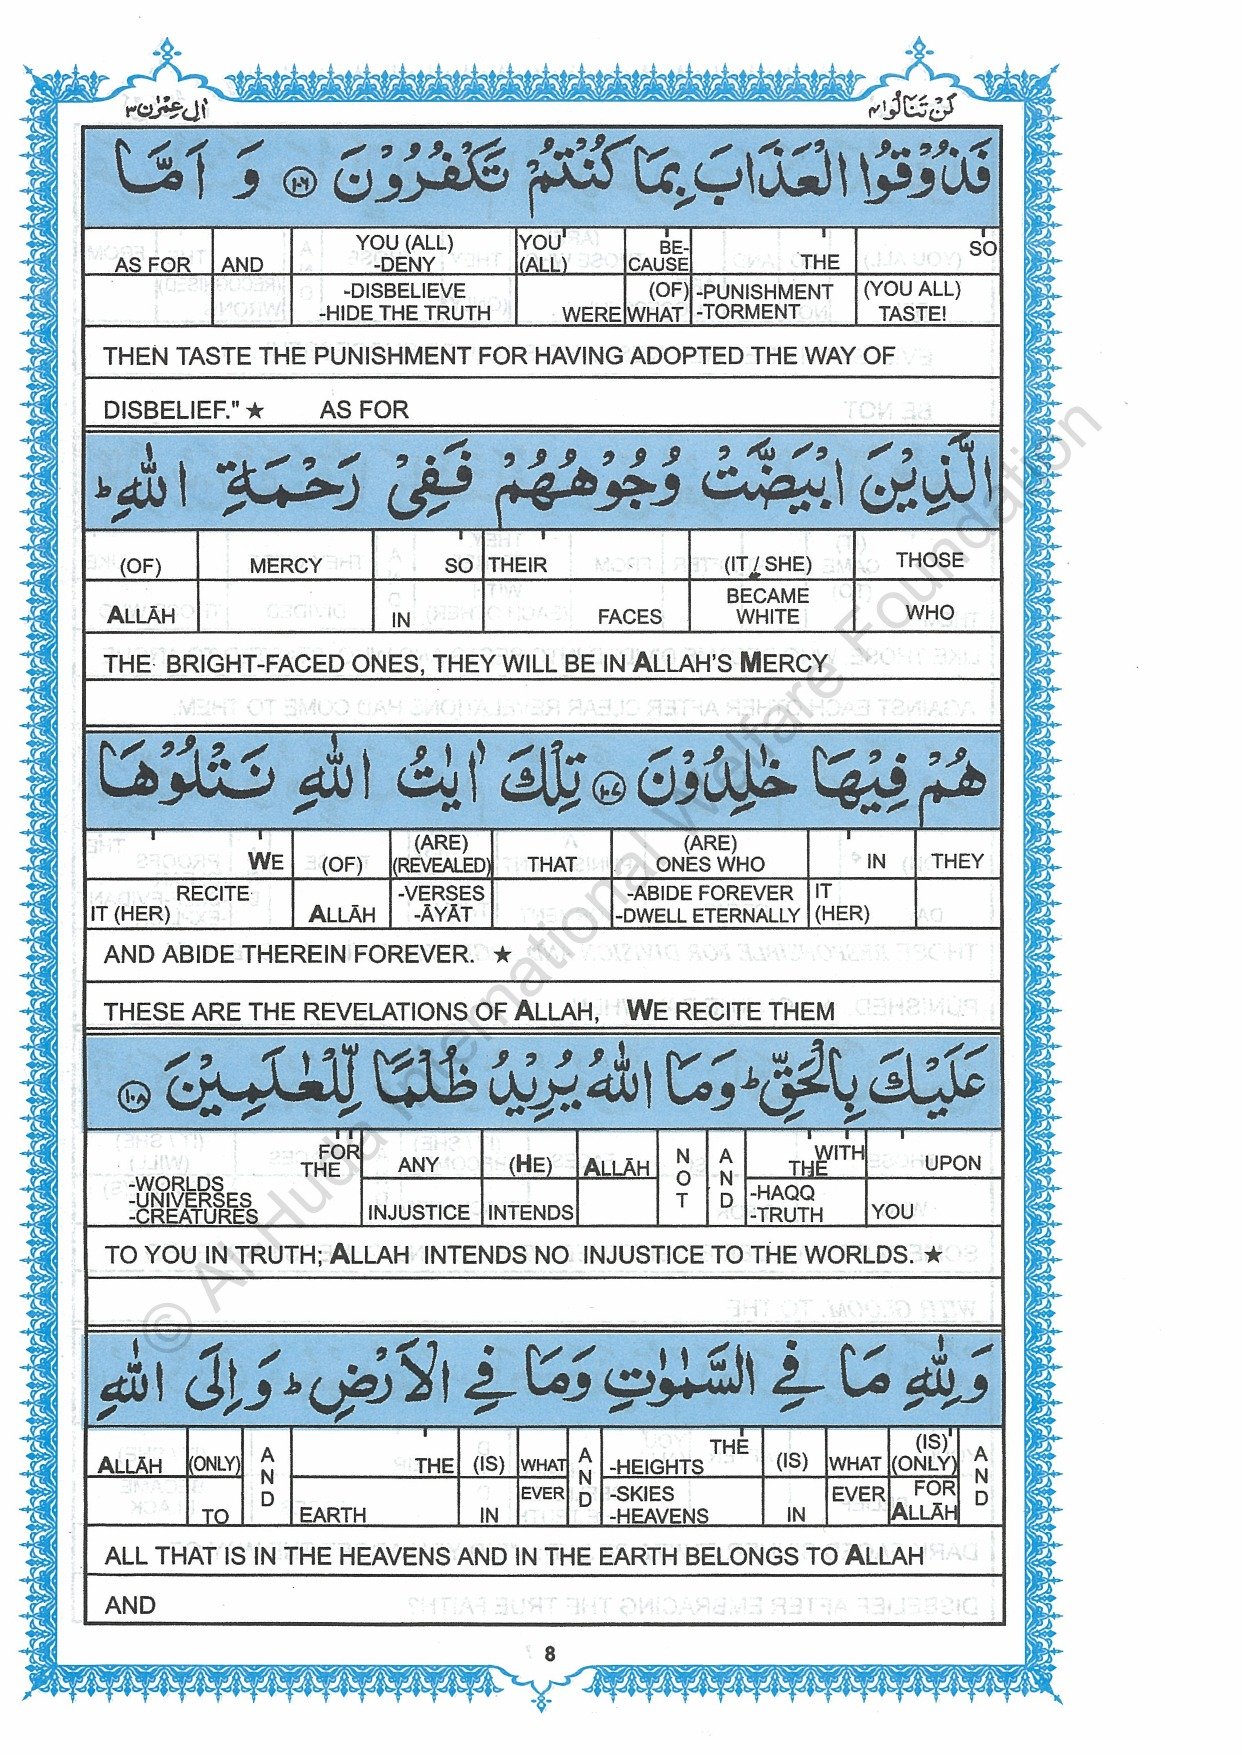 اٰل عِمْرٰن ٣
لَنْ تَنَالُوا ٤
فَذُوْقُوا الْعَذَابَ بِمَا كُنْتُمْ تَكْفُرُوْنَ ﴿١٠٦﴾ وَ اَمَّا
AS FOR AND YOU (ALL) -DENY YOU (ALL) BE-CAUSE THE SO
-DISBELIEVE -HIDE THE TRUTH WERE (OF) WHAT -PUNISHMENT -TORMENT (YOU ALL) TASTE!
THEN TASTE THE PUNISHMENT FOR HAVING ADOPTED THE WAY OF
DISBELIEF." ★ AS FOR
الَّذِيْنَ ابْيَضَّتْ وُجُوْهُهُمْ فَفِيْ رَحْمَةِ اللّٰهِ ط
(OF) MERCY SO THEIR (IT / SHE) THOSE
ALLĀH IN FACES BECAME WHITE WHO
THE BRIGHT-FACED ONES, THEY WILL BE IN ALLAH'S MERCY
هُمْ فِيْهَا خٰلِدُوْنَ ﴿١٠٧﴾ تِلْكَ اٰيٰتُ اللّٰهِ نَتْلُوْهَا
WE (OF) (ARE) (REVEALED) THAT (ARE) ONES WHO IN THEY
RECITE IT (HER) ALLĀH -VERSES -ĀYĀT -ABIDE FOREVER -DWELL ETERNALLY IT (HER)
AND ABIDE THEREIN FOREVER. ★
THESE ARE THE REVELATIONS OF ALLAH, WE RECITE THEM
عَلَيْكَ بِالْحَقِّ ط وَمَا اللّٰهُ يُرِيْدُ ظُلْمًا لِّلْعٰلَمِيْنَ ﴿١٠٨﴾
FOR THE ANY (HE) ALLĀH NOT AND WITH THE UPON
-WORLDS -UNIVERSES -CREATURES INJUSTICE INTENDS -HAQQ -TRUTH YOU
TO YOU IN TRUTH; ALLAH INTENDS NO INJUSTICE TO THE WORLDS. ★
وَلِلّٰهِ مَا فِي السَّمٰوٰتِ وَمَا فِي الْاَرْضِ ط وَاِلَى اللّٰهِ
ALLĀH (ONLY) AND THE (IS) WHAT AND THE -HEIGHTS (IS) WHAT (IS) (ONLY) AND
TO EARTH IN EVER -SKIES -HEAVENS IN EVER FOR ALLĀH
ALL THAT IS IN THE HEAVENS AND IN THE EARTH BELONGS TO ALLAH
AND
8
© Al Huda International Welfare Foundation